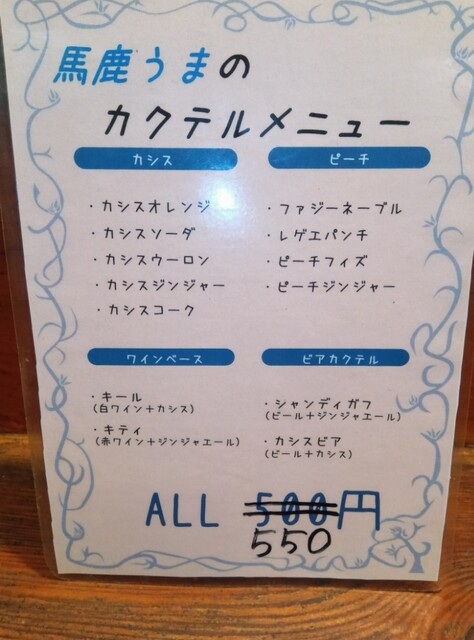 馬鹿うまの
カクテルメニュー
カシス
・カシスオレンジ
・カシスソーダ
・カシスウーロン
・カシスジンジャー
・カシスコーク
ピーチ
・ファジーネーブル
・レゲエパンチ
・ピーチフィズ
・ピーチジンジャー
ワインベース
・キール
(白ワイン+カシス)
・キティ
(赤ワイン+ジンジャエール)
ビアカクテル
・シャンディガフ
(ビール+ジンジャエール)
・カシスビア
(ビール+カシス)
ALL 500円
550